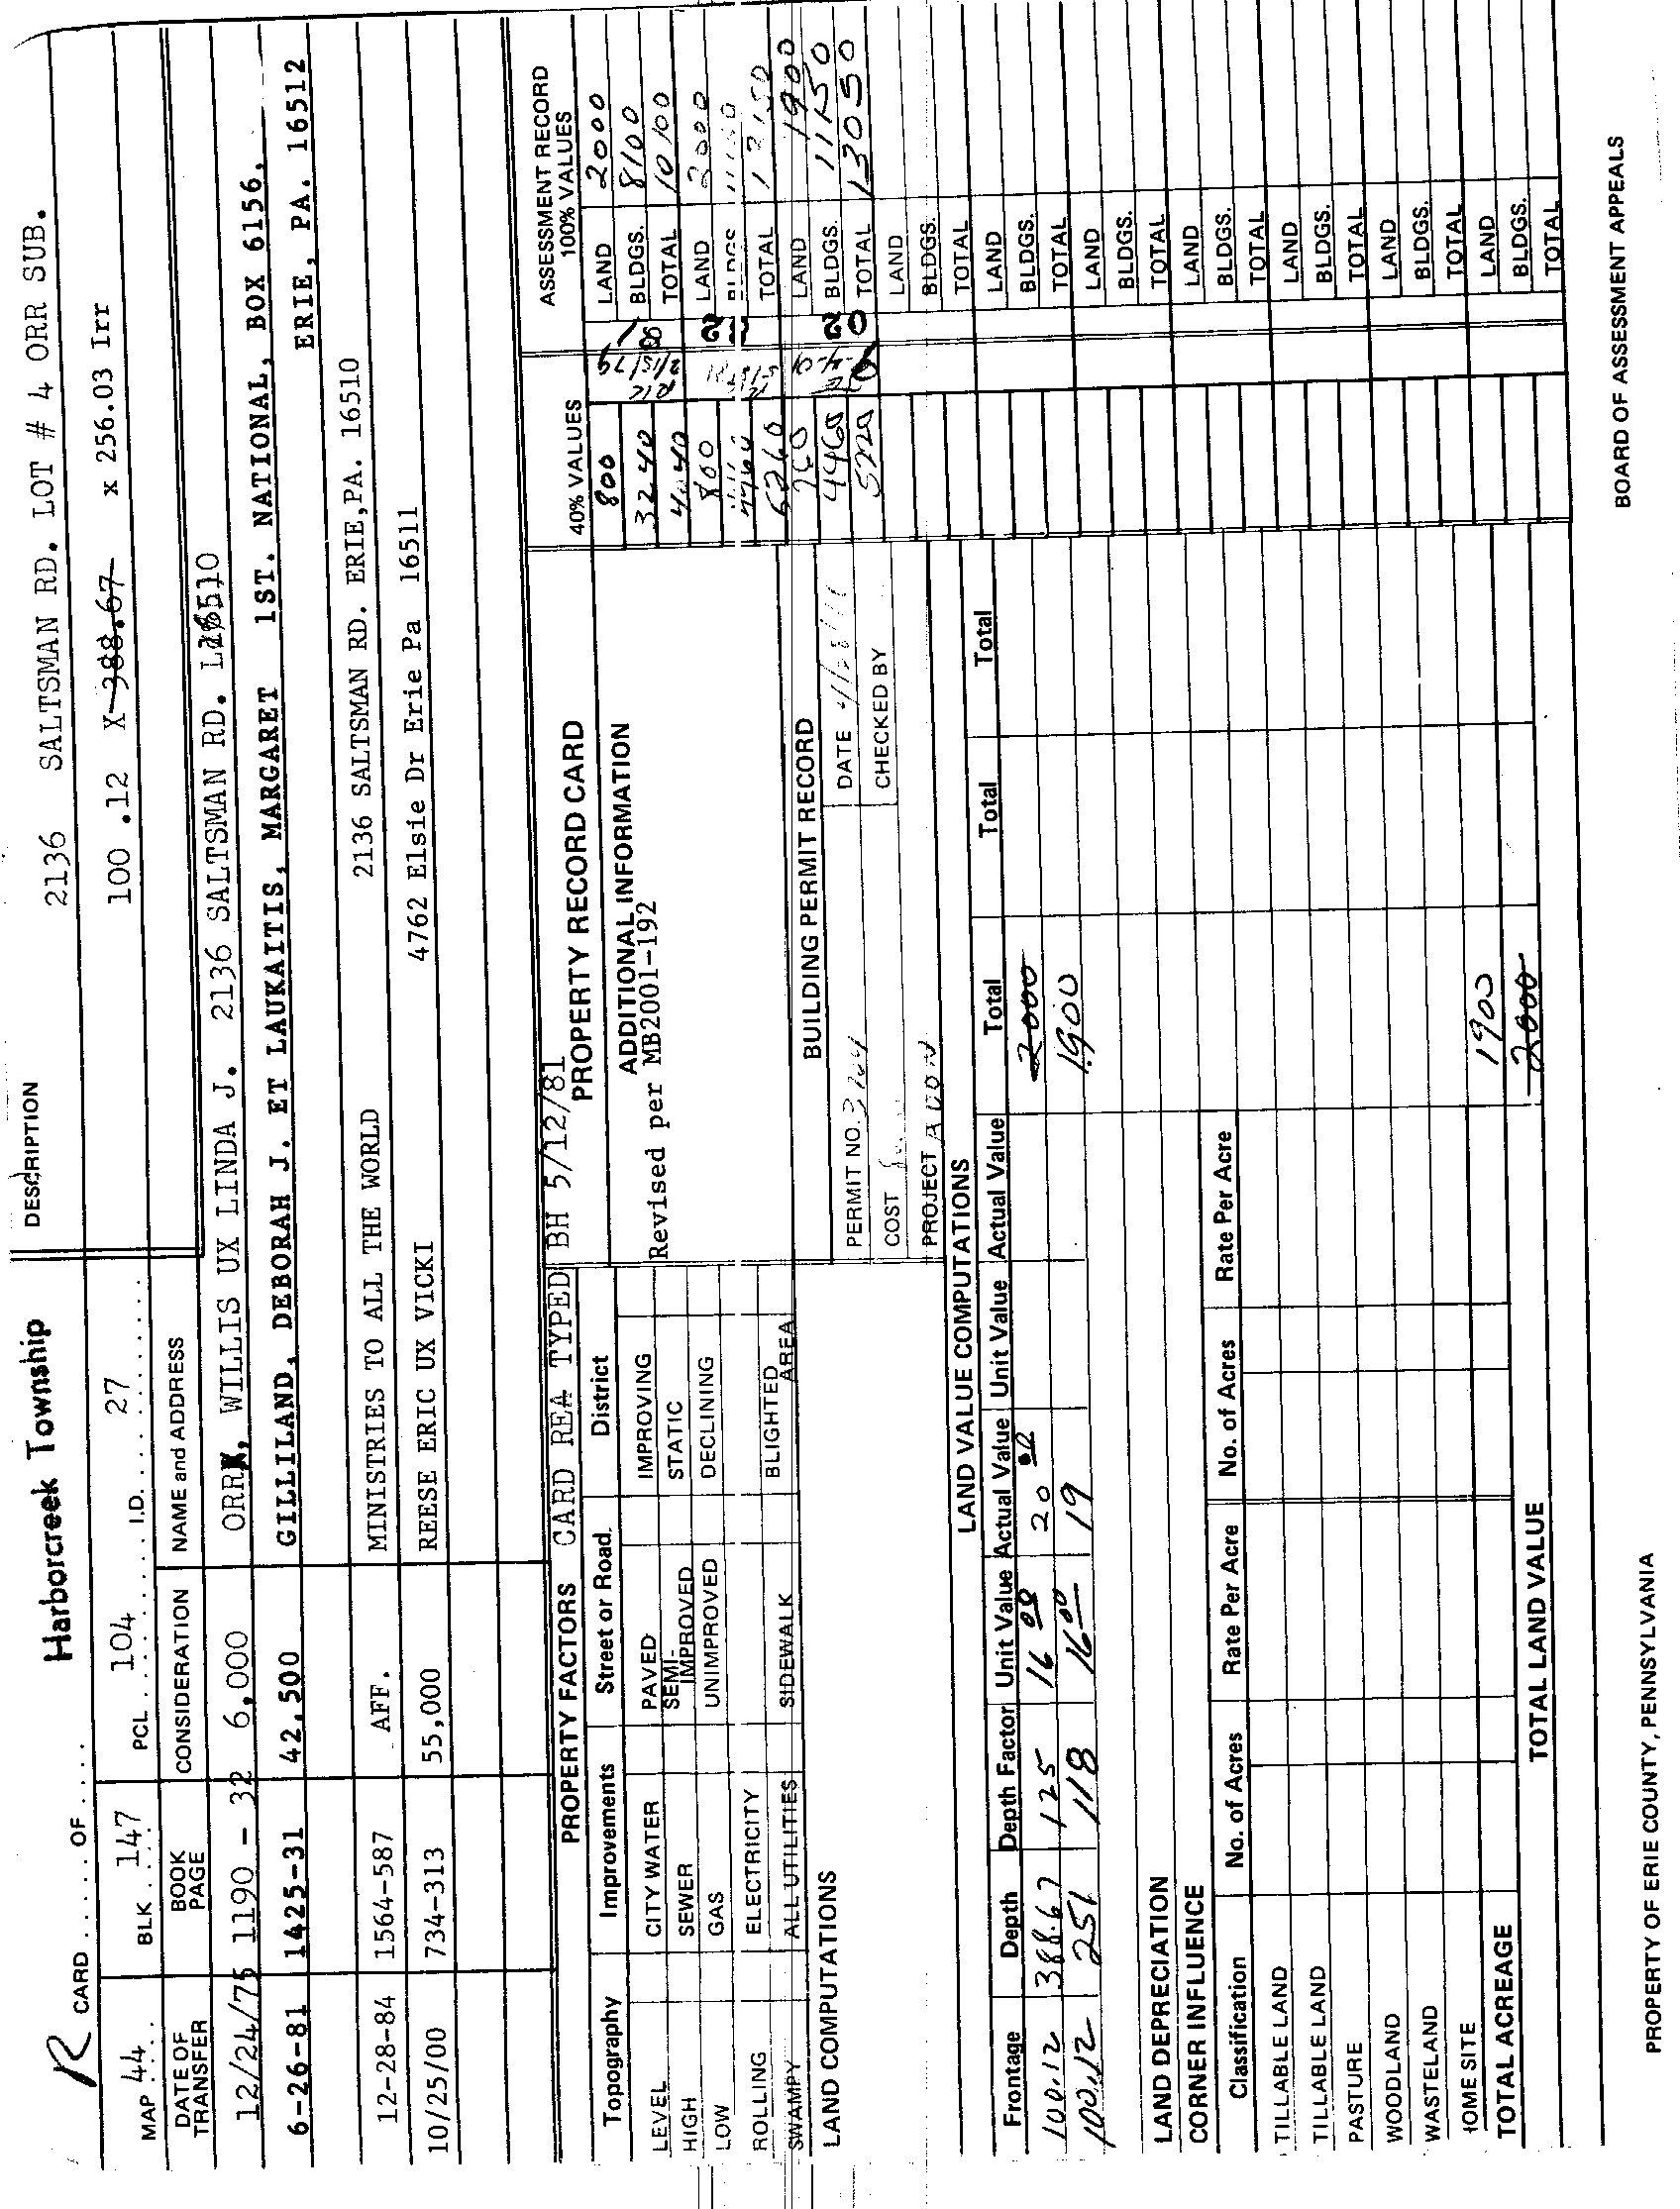 R CARD ...... OF ....
Harborcreek Township
DESCRIPTION
2136 SALTSMAN RD. LOT # 4 ORR SUB.
MAP 44 BLK 147 PCL 104 I.D. 27
100 .12 X 388.67 x 256.03 Irr
DATE OF TRANSFER BOOK PAGE CONSIDERATION NAME and ADDRESS
12/24/75 1190 - 32 6,000 ORR, WILLIS UX LINDA J. 2136 SALTSMAN RD.
6-26-81 1425-31 42,500 GILLILAND, DEBORAH J. ET LAUKAITIS, MARGARET 1ST. NATIONAL, BOX 6156,
ERIE, PA. 16512
12-28-84 1564-587 AFF. MINISTRIES TO ALL THE WORLD 2136 SALTSMAN RD. ERIE,PA. 16510
10/25/00 734-313 55,000 REESE ERIC UX VICKI 4762 Elsie Dr Erie Pa 16511
CARD REA TYPED BH 5/12/81
PROPERTY FACTORS
Topography Improvements Street or Road District
LEVEL CITY WATER PAVED IMPROVING
HIGH SEWER SEMI-IMPROVED STATIC
LOW GAS UNIMPROVED DECLINING
ROLLING ELECTRICITY BLIGHTED AREA
SWAMPY ALL UTILITIES SIDEWALK
LAND COMPUTATIONS
PROPERTY RECORD CARD
ADDITIONAL INFORMATION
Revised per MB2001-192
BUILDING PERMIT RECORD
PERMIT NO. DATE
COST CHECKED BY
PROJECT ADDN
40% VALUES ASSESSMENT RECORD
100% VALUES
800 2/15/79 LAND 2000
3240 BLDGS. 8100
4040 TOTAL 10100
800 LAND 2000
4460 BLDGS.
5260 TOTAL 13150
760 LAND 1900
4460 BLDGS. 11150
5220 TOTAL 13050
LAND
BLDGS.
TOTAL
LAND
BLDGS.
TOTAL
LAND
BLDGS.
TOTAL
LAND
BLDGS.
TOTAL
LAND
BLDGS.
TOTAL
LAND
BLDGS.
TOTAL
LAND
BLDGS.
TOTAL
LAND VALUE COMPUTATIONS
Frontage Depth Depth Factor Unit Value Actual Value Unit Value Actual Value Total Total Total
100.12 388.67 125 16 00 20 00 2000
100.12 251 118 16 00 19 1900
LAND DEPRECIATION
CORNER INFLUENCE
Classification No. of Acres Rate Per Acre No. of Acres Rate Per Acre
TILLABLE LAND
TILLABLE LAND
PASTURE
WOODLAND
WASTELAND
HOME SITE
TOTAL ACREAGE 1900
TOTAL LAND VALUE 2000
PROPERTY OF ERIE COUNTY, PENNSYLVANIA BOARD OF ASSESSMENT APPEALS